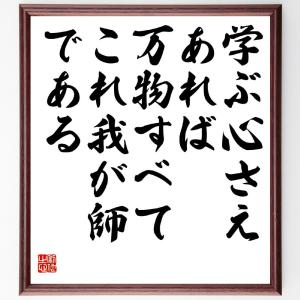 学ぶ心さえ
あれば
万物すべて
これ我が師
である